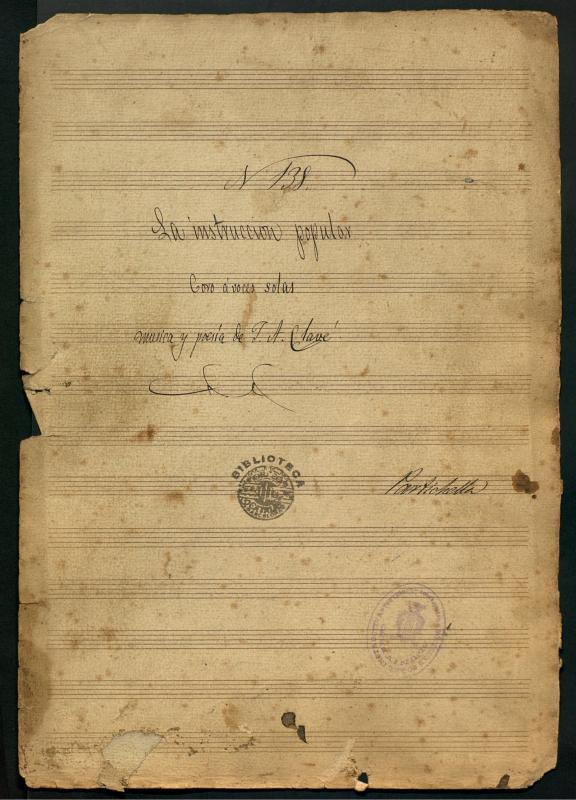 N 138.
La instruccion popular
Coro á voces solas
musica y poesía de J. A. Clavé
BIBLIOTECA
Partichella